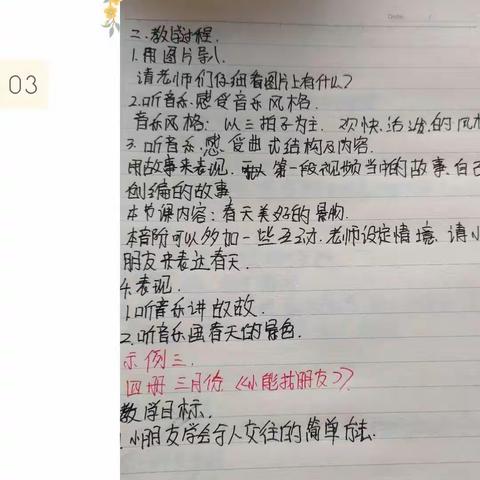 03
Date
二、教学过程.
1.用图片导入.
请老师们仔细看图片上有什么?
2.听音乐.感受音乐风格.
音乐风格: 以三拍子为主. 欢快.活泼.的风格
3.听音乐.感受曲式结构及内容.
用故事来表现. 第一段视频当中的故事.自己
创编的故事
本节课内容: 春天美好的景物.
本阶段可以多加一些互动.老师设定情境.请小
朋友来表达春天.
4.表现.
1.听音乐讲故故.
2.听音乐画春天的景色.
示例三.
四册 三月份《小熊找朋友》
教学目标.
1.小朋友学会与人交往的简单方法.